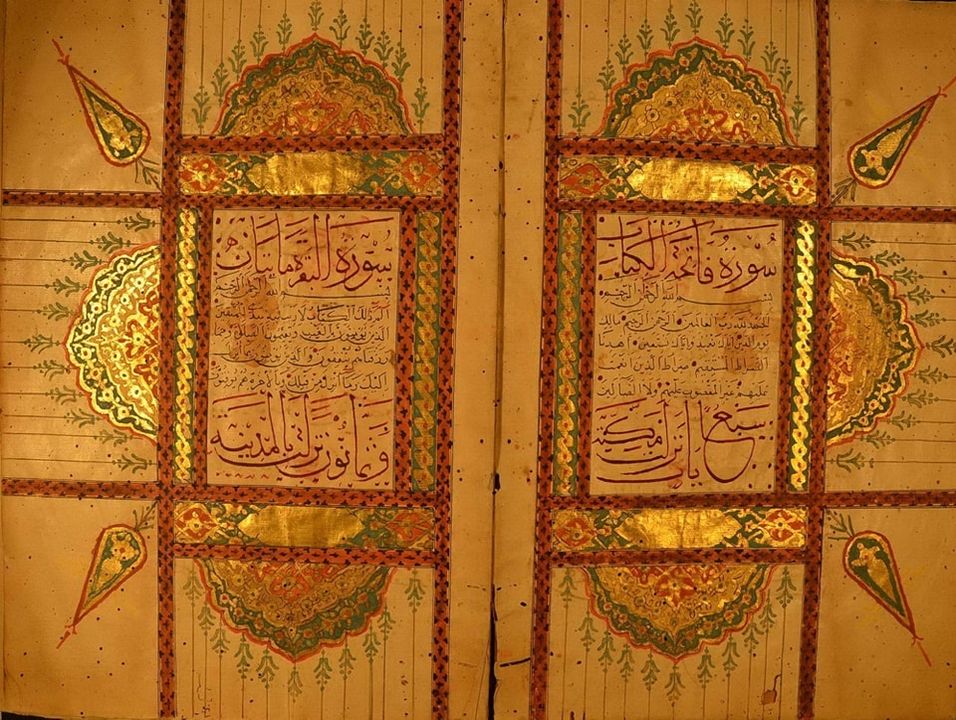 سورة فاتحة الكتاب
بسم الله الرحمن الرحيم
الحمد لله رب العالمين الرحمن الرحيم مالك
يوم الدين اياك نعبد واياك نستعين اهدنا
الصراط المستقيم صراط الذين انعمت
عليهم غير المغضوب عليهم ولا الضالين
سبع مكية
سورة البقرة مايتان
بسم الله الرحمن الرحيم
الم ذلك الكتاب لا ريب فيه هدى للمتقين
الذين يؤمنون بالغيب ويقيمون الصلوة ومما
رزقناهم ينفقون والذين يؤمنون بما انزل
اليك وما انزل من قبلك وبالاخرة هم يوقنون
وثمانون نزلت بالمدينة